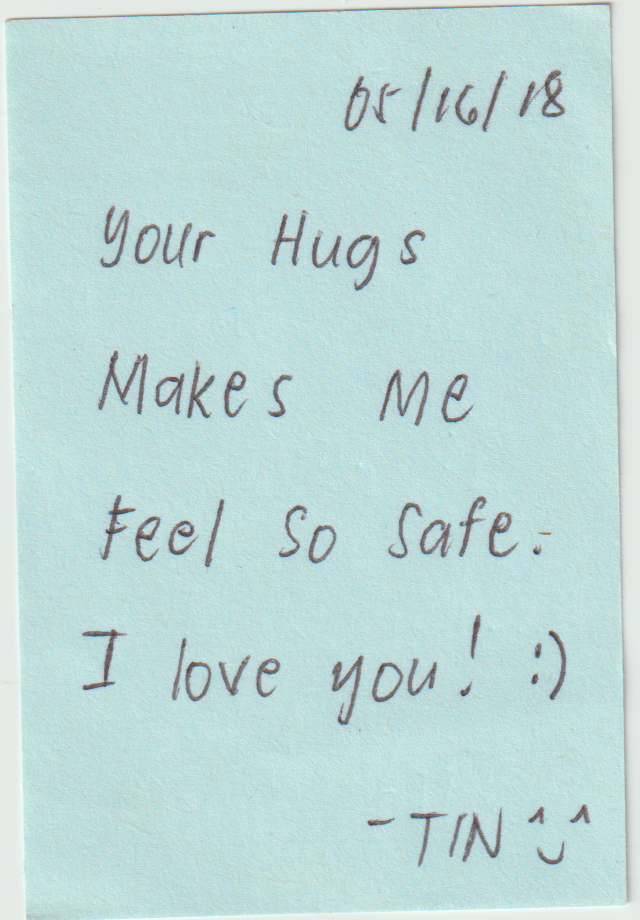 05/16/18
Your Hugs
Makes Me
Feel So Safe.
I love you! :)
- TIN ^‿^